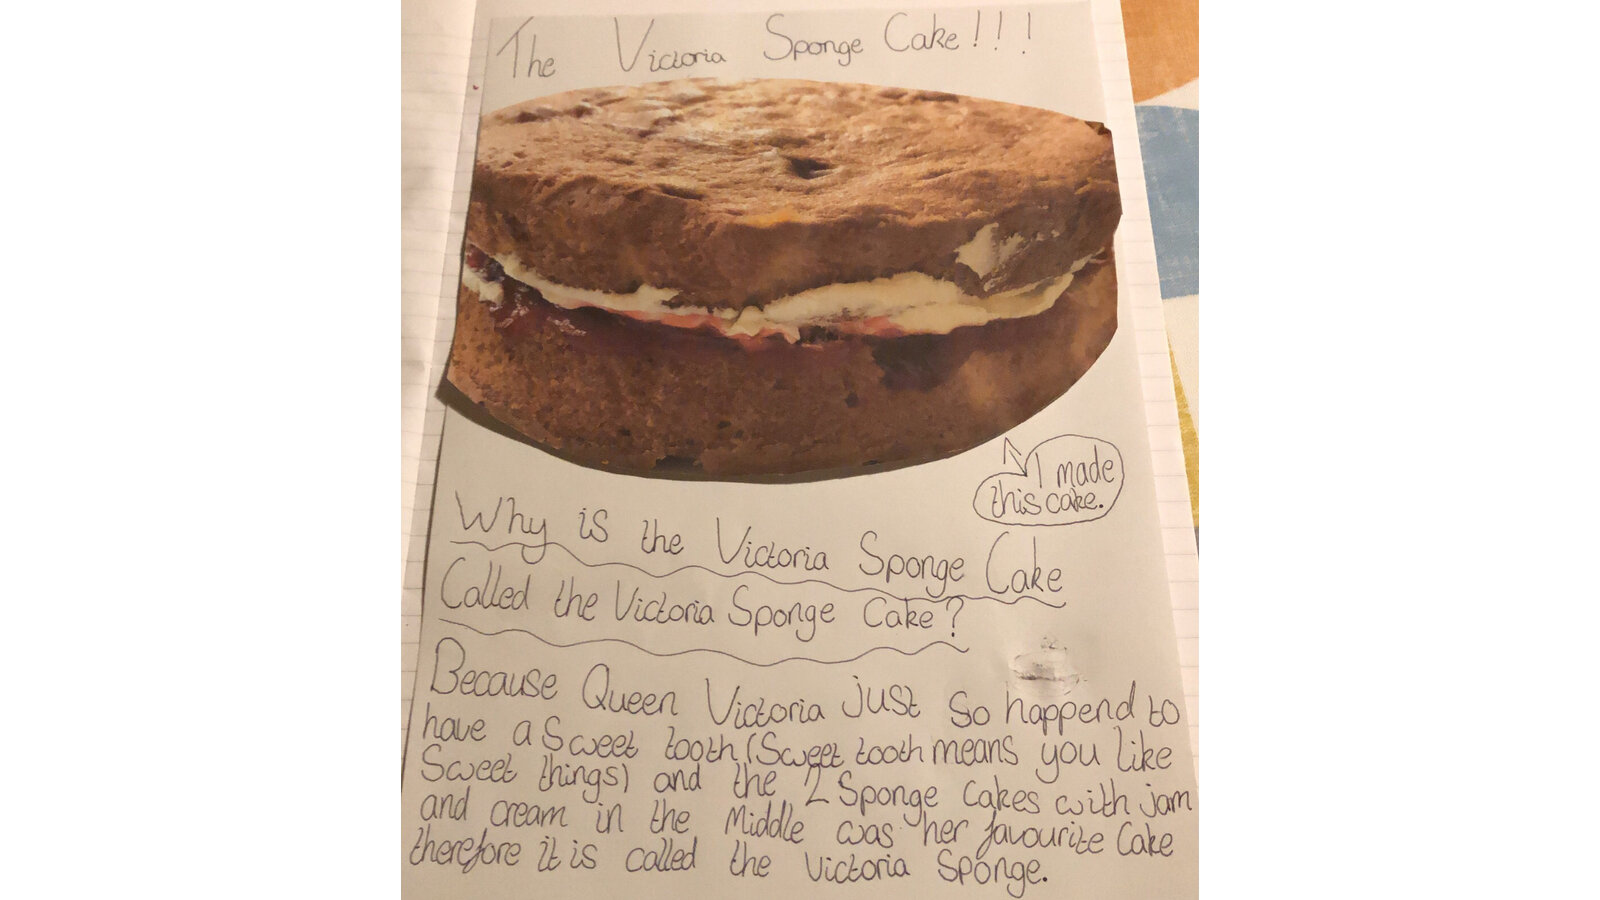 The Victoria Sponge Cake!!!
I made
this cake.
Why is the Victoria Sponge Cake
Called the Victoria Sponge Cake?
Because Queen Victoria just so happend to
have a sweet tooth (Sweet tooth means you like
Sweet things) and the 2 Sponge Cakes with jam
and cream in the Middle was her favourite Cake
therefore it is called the Victoria Sponge.